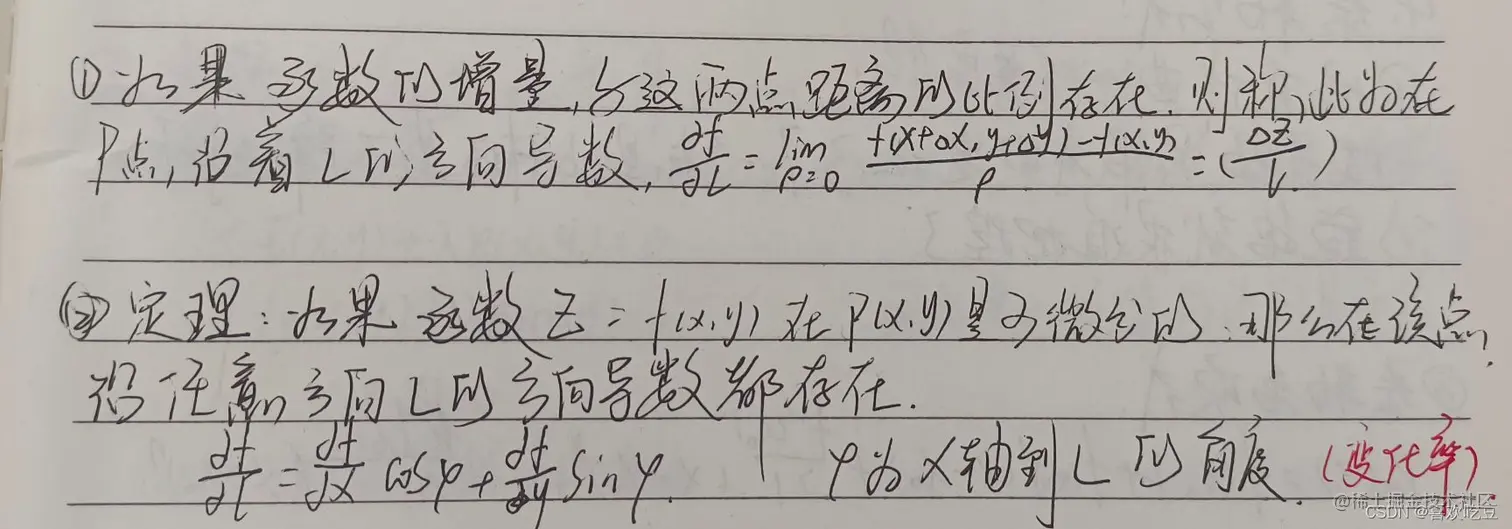 ①如果函数的增量,与这两点距离的比例存在.则称此为在
P点,沿着L的方向导数,∂f/∂L = lim ρ=0 f(x+Δx,y+Δy)-f(x,y)/ρ =(ΔZ/L)
②定理:如果函数Z=f(x,y)在P(x,y)是可微分的.那么在该点.
沿任意方向L的方向导数都存在.
∂f/∂l = ∂f/∂x cosφ+ ∂f/∂y sinφ. φ为X轴到L的角度.(变化率).
@稀土掘金技术社区
CSDN @喜欢吃豆